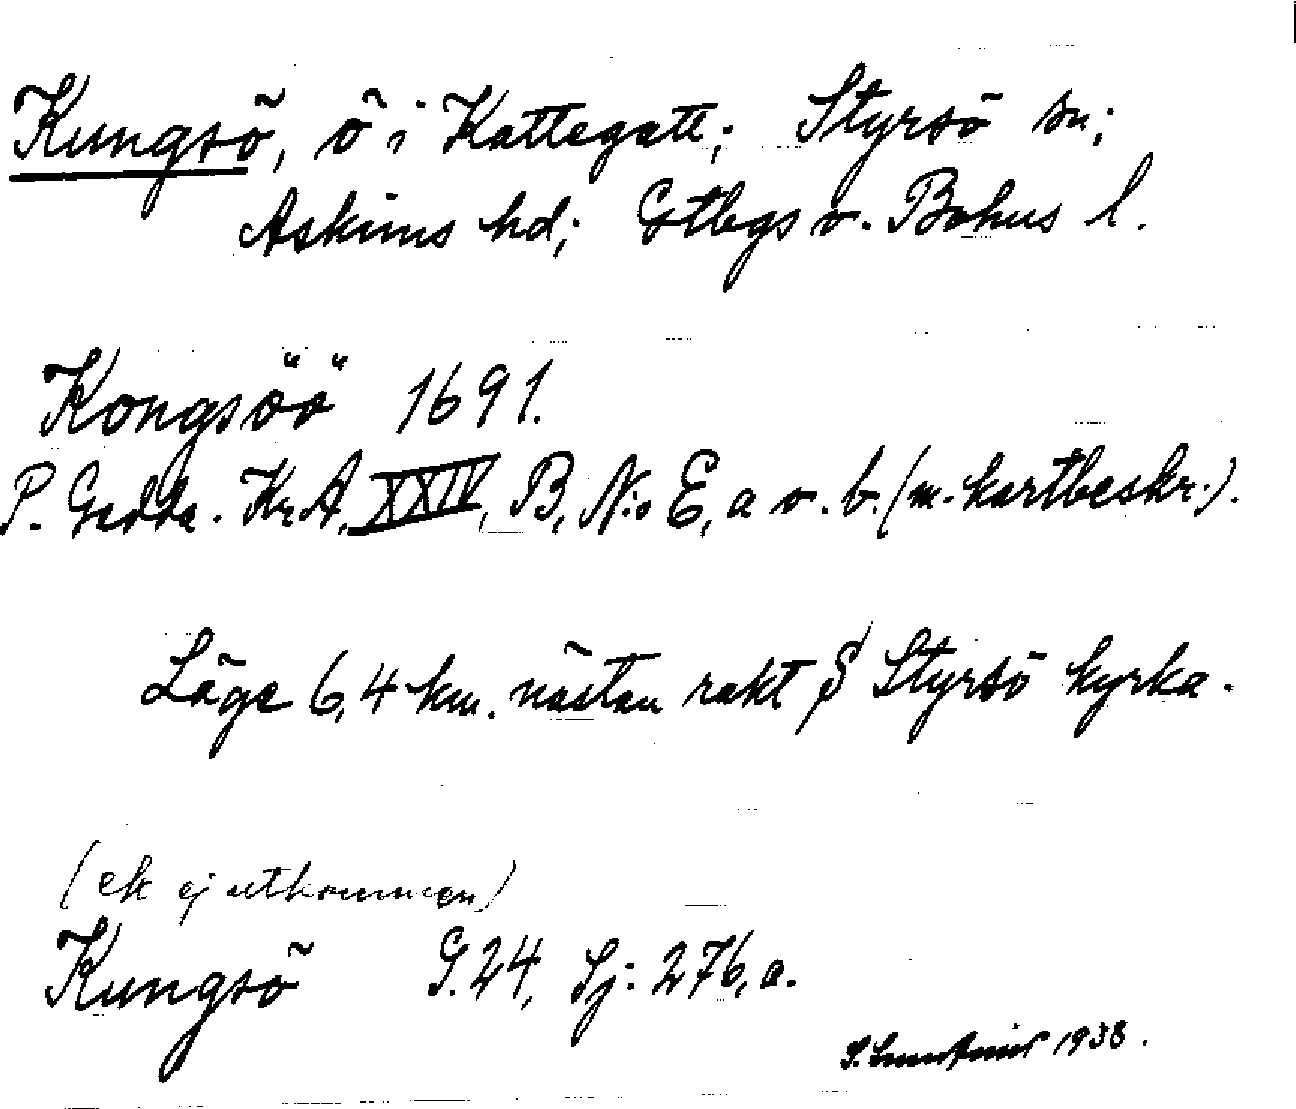 Kungsö, ö i Kattegatt; Styrsö sn;
Askims hd; Gtbgs o. Bohus l.
Kongsöö 1691.
P. Gedda. Kr.A, XXIV, B, N:o E, a o. b. (m. kartbeskr.).
Läge 6,4 km. nästan rakt S Styrsö kyrka.
(ek ej utkommen)
Kungsö G.24, Sj: 276, a.
S. 1938.